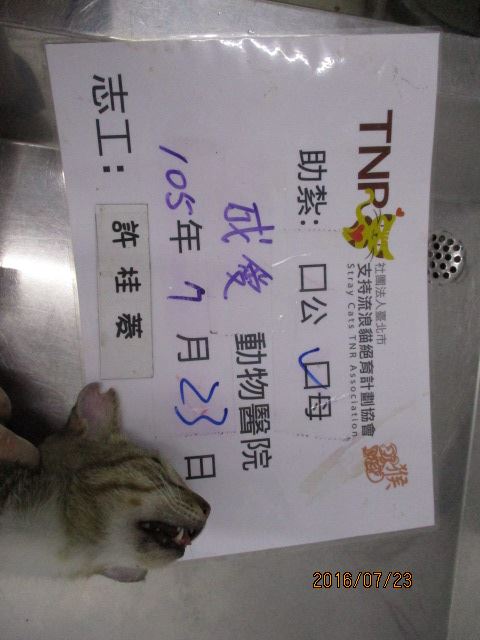 TNR
社團法人臺北市
支持流浪貓絕育計劃協會
Stray Cats TNR Association
猴
助紮：□公 □母
成俊 動物醫院
105年 7月 23日
志工：許桂蓁
2016/07/23